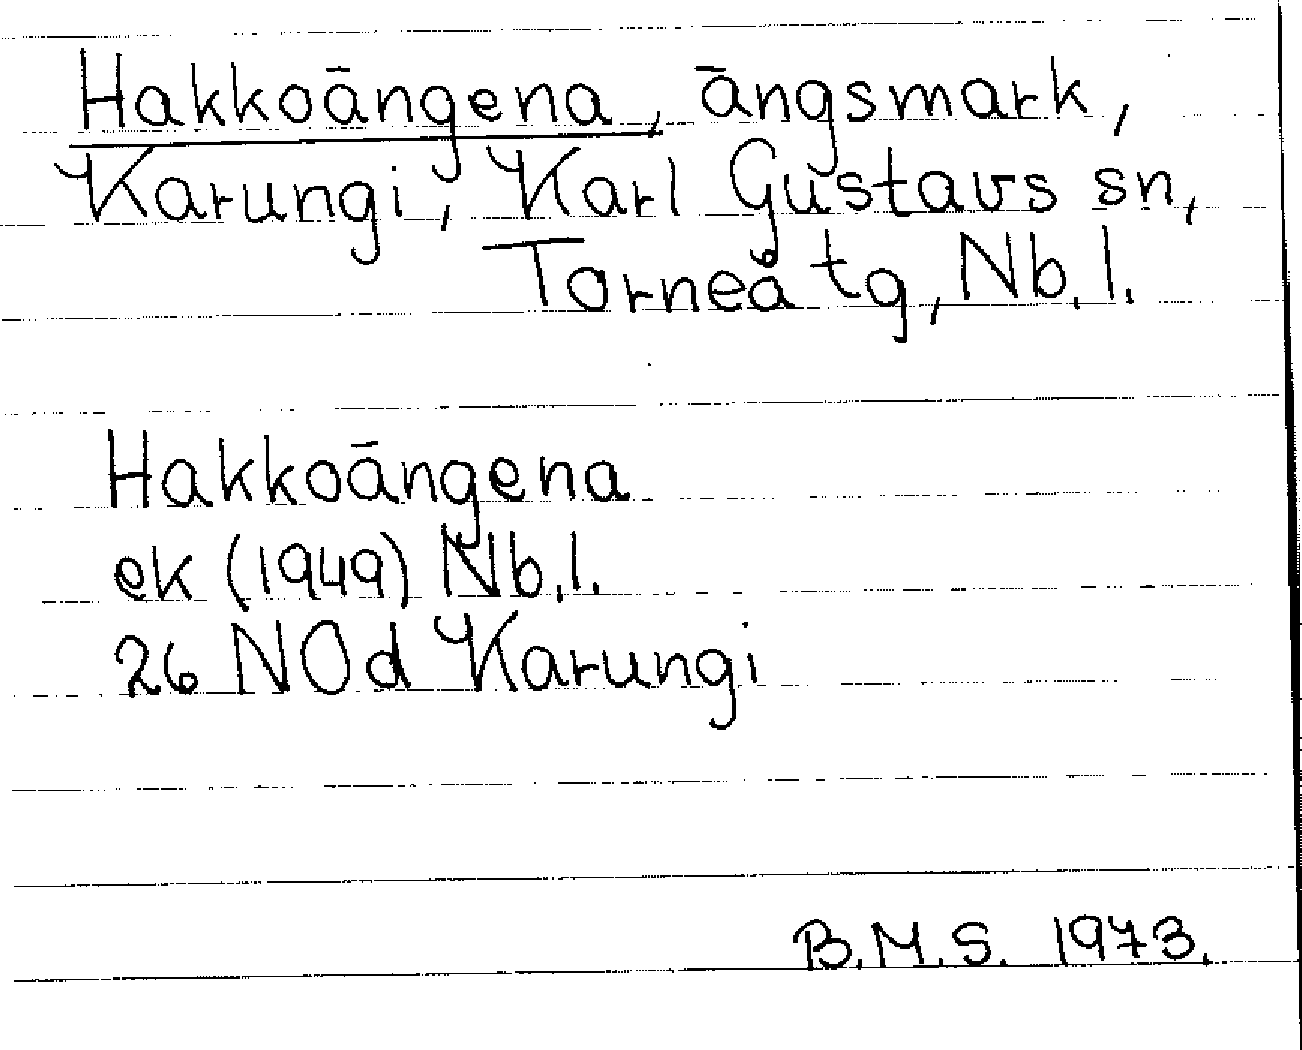 Hakkoängena, ängsmark,
Karungi, Karl Gustavs sn,
Torneå tg, Nb. l.
Hakkoängena
ek (1949) Nb. l.
26 NOd Karungi
B.M.S. 1973.